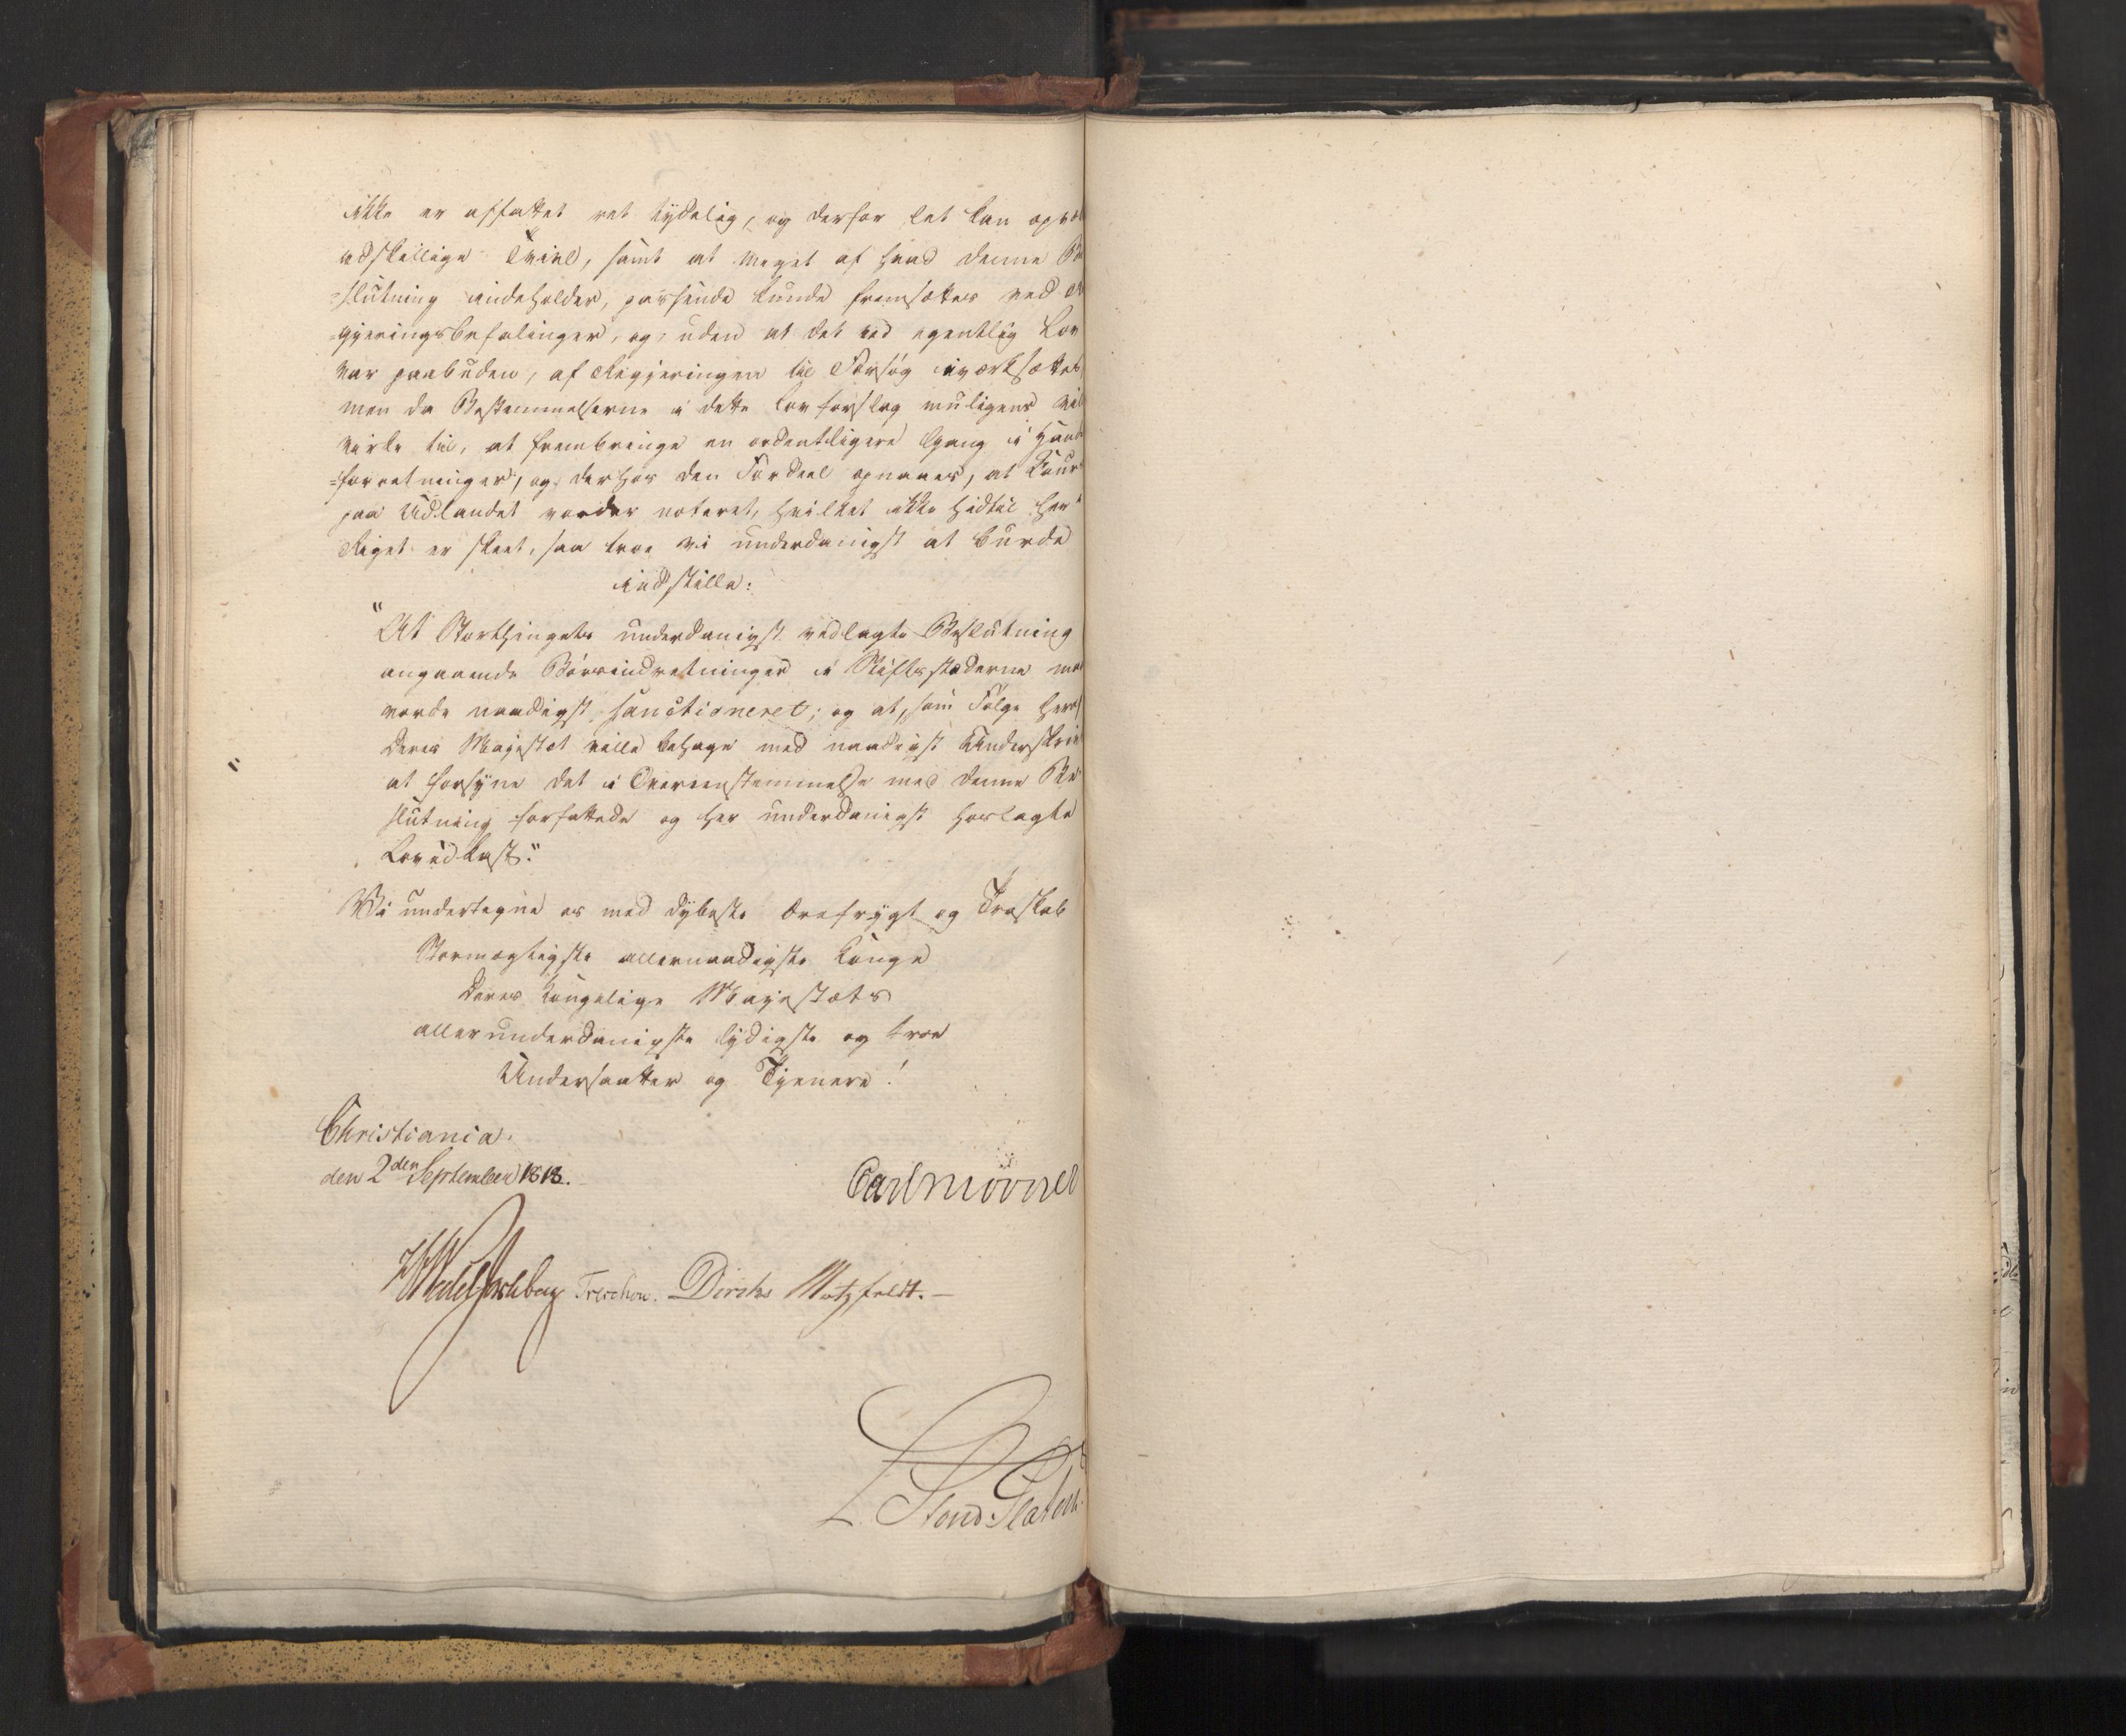 ikke er affattet ret tydelig, og derfor let kan opvæ
adskillige Tvivl, samt at meget af hvad denne Be
=slutning indeholder, passende kunde fremsættes ved Re
=gjeringsbefalinger, og, uden at det ved egentlig Lov
var paabuden, af Regjeringen til Forsøg iværksættes,
men da Bestemmelserne i dette Lovforslag muligens vil
virke til, at frembringe en ordentligere Gang i Hand
=forretninger, og derhos den Fordeel opnaaes, at Cour
paa Udlandet vorder noteret, hvilket ikke hidtil her i
Riget er skeet, saa troe vi underdanigst at burde
indstille:
"At Storthingets underdanigst vedlagte Beslutning
angaaende Børsindretninger i Stiftsstæderne maa
vorde naadigst sanctioneret; og at, som Følge heraf
Deres Majestæt ville behage med naadigst Underskrivt
at forsyne det i Overeensstemmelse med denne Be
slutning forfattede og her underdanigst hoslagte
Lovudkast."
Vi undertegne os med dybeste Ærefrygt og Troskab
Stormægtigste allernaadigste Konge
Deres Kongelige Majestæts
allerunderdanigste lydigste og troe
Undersaatter og Tjenere!
Christiania.
den 2den September 1818.
Carl Mörner
HWedel Jarlsberg Treschow. Diriks Motzfeldt. —
L. Stoud Platou